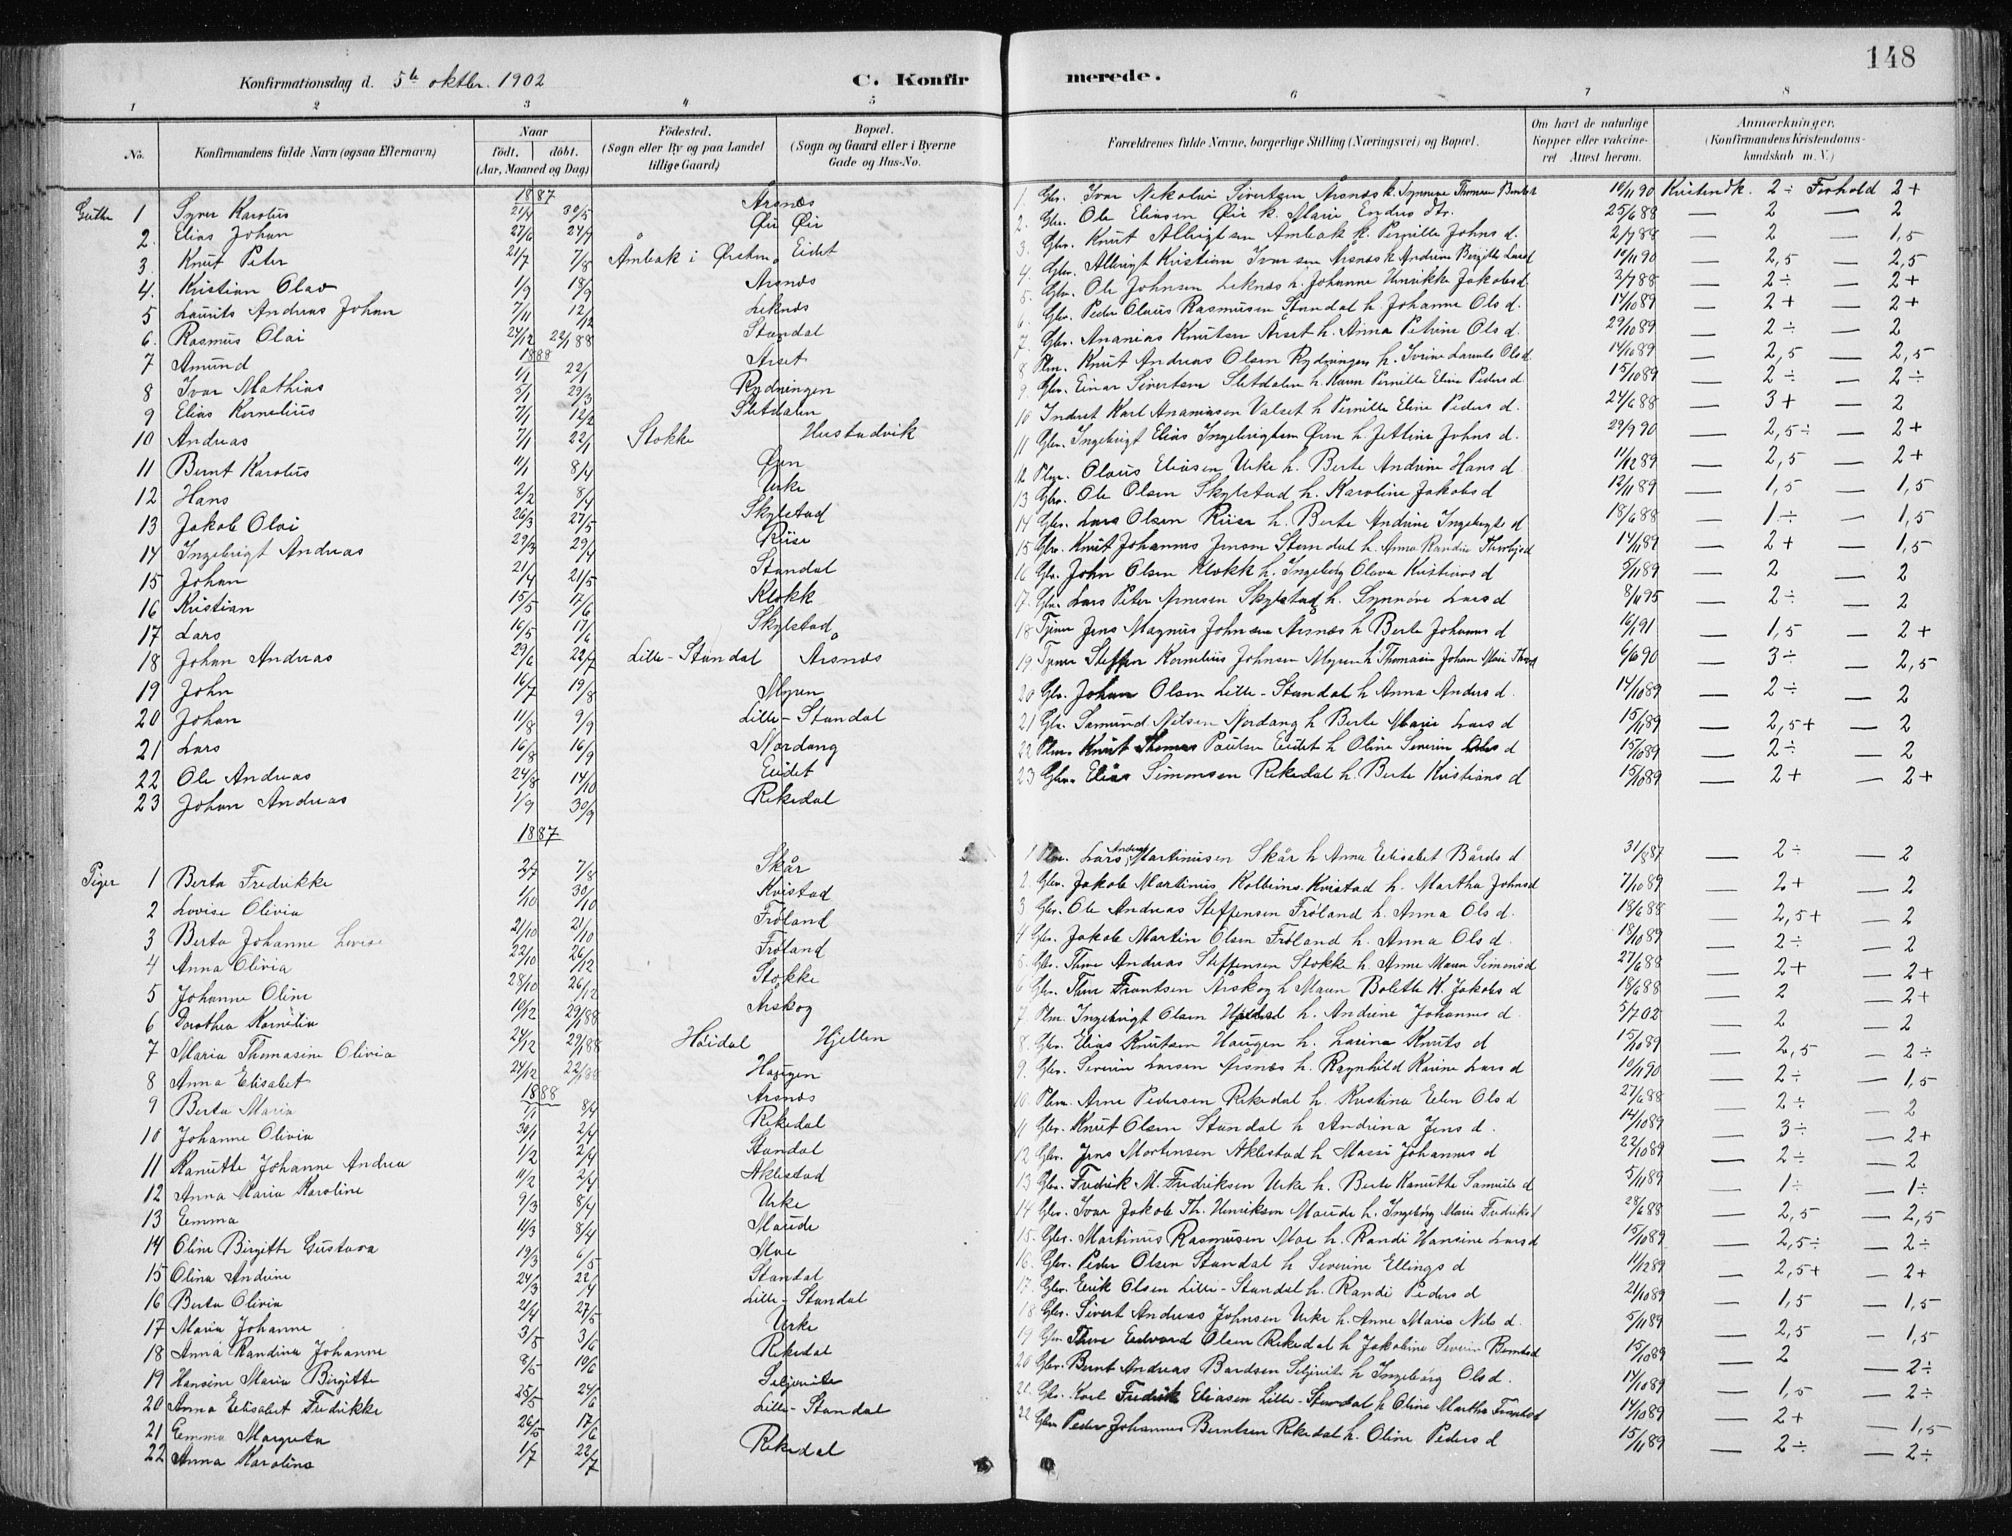 148
Konfirmationsdag d. 5te oktbr. 1902 C. Konfirmerede.
1 2 3 4 5 6 7 8
No. Konfirmandens fulde Navn (ogsaa Efternavn) Naar födt. döbt. (Aar, Maaned og Dag) Födested. (Sogn eller By og paa Landet tillige Gaard) Bopæl. (Sogn og Gaard eller i Byerne Gade og Hus-No. Forældrenes fulde Navne, borgerlige Stilling (Næringsvei) og Bopæl. Om havt de naturlige Kopper eller vakcineret Attest herom. Anmærkninger. (Konfirmandens Kristendomskundskab m. V.)
1887
1 Syver Karolus 21/4 30/5 Årsnæs 1. Gbr. Ivar Nikolai Sivertsen Årsnæs k. Synneve Thomasa 10/11 90 Kristendk. 2 ÷ Forhold 2 +
2. Elias Johan 27/6 24/7 Øie Øie 2. Gbr. Ole Eliasen Øie k. Marie Endres dtr. 25/6 88 — 2 — 2
3. Knut Peter 21/7 7/8 Åmbak i Ørsten Eidet 3. Gbr. Knut Albrigtsen Åmbak k. Pernille Johns d. 2/7 88 — 2 — 1,5
4. Kristian Olav 1/9 18/9 Årsnæs 4. Gbr. Albrigt Kristian Ivarsen Årsnæs k. Andrine Birgitte Larsd 10/11 90 — 2,5 — 2,5
5 Laurits Andreas Johan 7/11 12/12 Leknæs 5. Gbr. Ole Johnsen Leknæs h. Johanne Henrikke Jakobsd 2/7 88 — 2 ÷ — 2 +
6. Rasmus Olai 24/12 22/1 88 Standal 6. Gbr. Peder Olaus Rasmussen Standal h. Johanne Ols d. 14/10 89 — 2 + — 2 +
1888
7 Amund 1/1 22/1 Årset 7. Gbr. Ananias Knutsen Årset h. Anna Petrine Ols d. 29/10 89 — 2 ÷ — 2
8 Ivar Mathias 5/1 29/3 Rydningen 8 Plm. Knut Andreas Olsen Rydningen h. Ivrine Larsd. Olsd. 14/10 89 — 2,5 — 2,5
9 Elias Kornelius 7/1 12/2 Sletdalen 9. Gbr. Einar Sivertsen Sletdalen h. Karen Pernille Eline Peders d 15/10 89 — 2 ÷ — 2 ÷
10 Andreas 7/1 22/1 Stokke Hustadvik 10 Inderst Karl Ananiasen Valset h Pernille Eline Peders d. 24/6 88 — 3 + — 2
11 Bernt Karolus 11/1 8/4 Øren 11 Gbr. Ingebrigt Elias Ingebrigtsen Øren h Jettine Johns d. 29/9 90 — 2,5 ÷ — 2 +
12 Hans 2/2 8/4 Urke 12 Plm. Olaus Eliasen Urke h. Berte Andrine Hans d 11/12 89 — 2,5 — 2 +
13 Jakob Olai 26/3 27/5 Skylstad 13 Gbr. Ole Olsen Skylstad h. Karoline Jakobs d 12/11 89 — 1,5 — 1,5
14 Ingebrigt Andreas 29/3 29/4 Riise 14 Gbr. Lars Olsen Riise h. Berte Andrine Ingebrigts d 18/6 88 — 1 ÷ — 1,5
15 Johan 21/4 21/5 Standal 15 Gbr. Knut Johannes Jensen Standal h. Anna Randine 14/11 89 — 2 + — 1,5
16 Kristian 15/5 17/6 Klokk 16 Gbr. John Olsen Klokk h. Ingeborg Olava Kristians d 5/11 89 — 2 — 2
17 Lars 16/5 17/6 Skylstad 17. Gbr. Lars Peter Arnesen Skylstad h. Synnøve Lars d 8/4 95 — 2 ÷ — 2
18 Johan Andreas 29/6 22/7 Lille-Standal Årsnæs 18 Tjener Jens Magnus Johnsen Årsnæs h Berte Johannes d 16/1 91 — 1,5 — 2 +
19 John 16/7 19/8 Myren 19 Tjener Steffen Kornelius Johnsen Myren h Thomasine Johan 6/6 90 — 3 ÷ — 2,5
20 Johan 11/8 9/9 Lille-Standal 20 Gbr. Johan Olsen Lille-Standal h Anna Anders d. 14/10 89 — 2 ÷ — 2
21 Lars 16/8 16/9 Nordang 21 Gbr. Samund Nilsen Nordang h Berte Marie Lars d 15/11 89 — 2,5 + — 2
22 Ole Andreas 24/8 14/10 Eidet 22 Plm. Knut Thomas Paulsen Eidet h Oline Severine Ols d 15/10 89 — 2 ÷ — 2
23 Johan Andreas 1/9 30/9 Rekedal 23 Gbr. Elias Simonsen Rekedal h. Berte Kristians d 15/10 89 — 2 + — 2 +
1887
Piger 1 Berta Fredrikke 2/7 7/8 Skår 1 Plm. Lars Anders Martinusen Skår h Anna Elisabet Bårds d 31/8 87 — 2 ÷ — 2
2 Lovise Olivia 1/10 30/10 Kvistad 2. Gbr. Jakob Martinus Kolbeins. Kvistad h. Martha Johnsd 7/10 89 — 2 + — 2
3 Berta Johanne Lovise 21/10 21/10 Frøland 3 Gbr. Ole Andreas Steffensen Frøland h. Anna Ols d. 18/6 88 — 2,5 + — 2
4 Anna Olivia 22/10 26/12 Frøland 4 Gbr. Jakob Martin Olsen Frøland h. Anna Ols d. 18/10 89 — 2 ÷ — 2
5 Johanne Oline 28/10 26/12 Stokke 5. Gbr. Thore Andreas Steffensen Stokke h. Anne Maren Simonsd 27/6 88 — 2 + — 2 +
6 Dorothea Kornelia 10/12 29/1 88 Årskog 6 Gbr. Thore Frantsen Årskog h Maren Bolette K. Jakobs d 18/6 88 — 2 — 2 +
7 Maria Thomasine Olivia 24/12 29/1 88 Høidal Hjellen 7 Plm. Ingebrigt Olsen h. Andrine Johannes d. 5/7 02 — 2 — 2
8 Anna Elisabet 24/12 22/1 88 Haugen 8. Gbr. Elias Knutsen Haugen h. Larina Knuts d 15/10 89 — 2,5 — 2 ÷
1888
9 Berta Maria 1/1 8/4 Årsnæs 9. Gbr. Severin Larsen Årsnæs h. Ragnhild Karine Lars d 10/11 90 — 2 ÷ — 1,5
10 Johanne Olivia 30/1 2/4 Rekedal 10 Plm. Arne Pedersen Rekedal h. Kristina Elen Ols d 27/6 88 — 2 ÷ — 2
11 Kanutte Johanne Andrea 1/2 2/4 Standal 11 Gbr. Knut Olsen Standal h Andrina Jens d. 14/10 89 — 3 ÷ — 2 +
12 Anna Maria Karoline 11/2 2/4 Aklestad 12 Gbr. Jens Mortensen Aklestad h Massi Johannes d 22/10 89 — 2 ÷ — 2
13 Emma 9/3 8/4 Urke 13 Gbr. Fredrik M. Fredriksen Urke h. Berte Kanutte Samuels d 5/11 89 — 1 ÷ — 1 ÷
14 Oline Birgitte Gustava 11/3 8/4 Maude 14 Gbr. Ivar Jakob Th. Henriksen Maude h. Ingeborg Marie Fredriksd 28/6 88 — 2,5 — 2,5
15 Olina Andrine 19/3 6/5 Moe 15. Gbr. Martinus Rasmusen Moe h. Randi Hansine Larsd 15/10 89 — 2,5 ÷ — 2 ÷
16 Berta Olivia 24/3 22/4 Standal 16. Gbr. Peder Olsen Standal h Severine Ellings d 11/12 89 — 2,5 + — 2 +
17 Maria Johanne 21/4 27/5 Lille-Standal 17. Gbr. Eerik Olsen Lille-Standal h. Randi Peders d 21/10 89 — 1,5 — 1,5
18 Anna Randina Johanne 3/5 3/6 Urke 18 Gbr. Sivert Andreas Johnsen Urke h. Anne Maria Nils d. 5/11 89 — 2,5 — 1,5
19 Hansine Maria Birgitte 8/5 10/6 Rekedal 19 Gbr. Thore Edvard Olsen Rekedal h Jakobine Severine Berntsd 15/10 89 — 2 — 2 ÷
20 Anna Elisabet Fredrikke 25/5 24/6 Seljevite 20 Gbr. Bernt Andreas Bardsen Seljevite h Ingeborg Ols d. 14/10 89 — 1,5 — 2 ÷
21 Emma Margreta 26/5 17/6 Lille-Standal 21. Gbr. Karl Fredrik Eliasen Lille-Standal h Oline Martha 14/10 89 — 2 + — 1,5
22 Anna Karolina 1/7 22/7 Rekedal 22 Gbr. Peder Johannes Berntsen Rekedal h. Oline Peders d 15/11 89 — 2 ÷ — 2 ÷